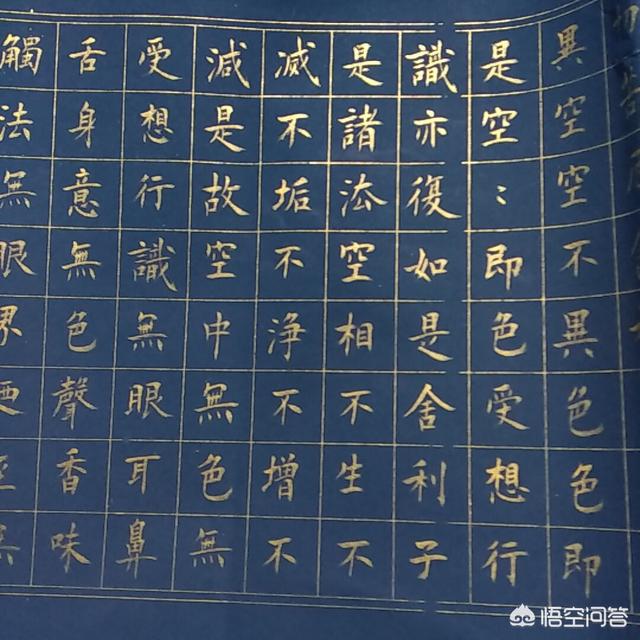 異空空不異色色即
是空：即色受想行
識亦復如是舍利子
是諸法空相不生不
滅不垢不浄不增不
減是故空中無色無
受想行識無眼耳鼻
舌身意無色聲香味
觸法無眼界
悟空问答